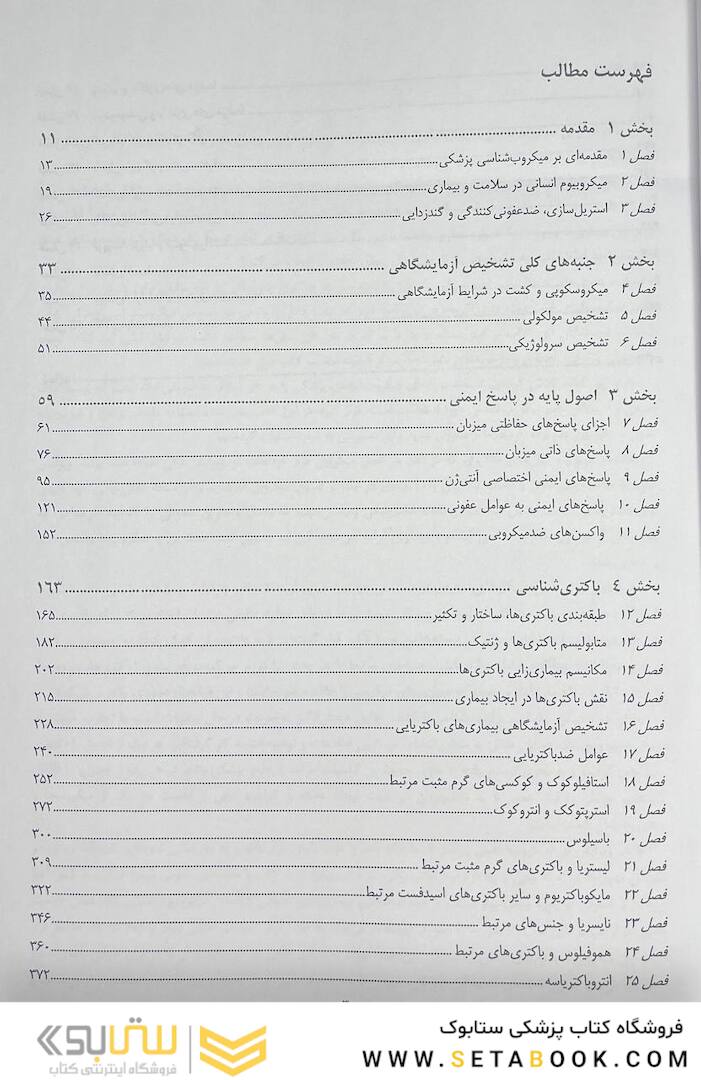 فهرست مطالب
بخش ۱ مقدمه ........ ۱۱
فصل ۱ مقدمه‌ای بر میکروب‌شناسی پزشکی ........ ۱۳
فصل ۲ میکروبیوم انسانی در سلامت و بیماری ........ ۱۹
فصل ۳ استریل‌سازی، ضدعفونی‌کنندگی و گندزدایی ........ ۲۶
بخش ۲ جنبه‌های کلی تشخیص آزمایشگاهی ........ ۳۳
فصل ۴ میکروسکوپی و کشت در شرایط آزمایشگاهی ........ ۳۵
فصل ۵ تشخیص مولکولی ........ ۴۴
فصل ۶ تشخیص سرولوژیکی ........ ۵۱
بخش ۳ اصول پایه در پاسخ ایمنی ........ ۵۹
فصل ۷ اجزای پاسخ‌های حفاظتی میزبان ........ ۶۱
فصل ۸ پاسخ‌های ذاتی میزبان ........ ۷۶
فصل ۹ پاسخ‌های ایمنی اختصاصی آنتی‌ژن ........ ۹۵
فصل ۱۰ پاسخ‌های ایمنی به عوامل عفونی ........ ۱۲۱
فصل ۱۱ واکسن‌های ضدمیکروبی ........ ۱۵۲
بخش ۴ باکتری‌شناسی ........ ۱۶۳
فصل ۱۲ طبقه‌بندی باکتری‌ها، ساختار و تکثیر ........ ۱۶۵
فصل ۱۳ متابولیسم باکتری‌ها و ژنتیک ........ ۱۸۲
فصل ۱۴ مکانیسم بیماری‌زایی باکتری‌ها ........ ۲۰۲
فصل ۱۵ نقش باکتری‌ها در ایجاد بیماری ........ ۲۱۵
فصل ۱۶ تشخیص آزمایشگاهی بیماری‌های باکتریایی ........ ۲۲۸
فصل ۱۷ عوامل ضدباکتریایی ........ ۲۴۰
فصل ۱۸ استافیلوکوک و کوکسی‌های گرم مثبت مرتبط ........ ۲۵۲
فصل ۱۹ استرپتوکک و انتروکوک ........ ۲۷۲
فصل ۲۰ باسیلوس ........ ۳۰۰
فصل ۲۱ لیستریا و باکتری‌های گرم مثبت مرتبط ........ ۳۰۹
فصل ۲۲ مایکوباکتریوم و سایر باکتری‌های اسیدفست مرتبط ........ ۳۲۲
فصل ۲۳ نایسریا و جنس‌های مرتبط ........ ۳۴۶
فصل ۲۴ هموفیلوس و باکتری‌های مرتبط ........ ۳۶۰
فصل ۲۵ انتروباکتریاسه ........ ۳۷۲
فروشگاه کتاب پزشکی ستابوک
WWW.SETABOOK.COM
ستابوک
فروشگاه اینترنتی کتاب